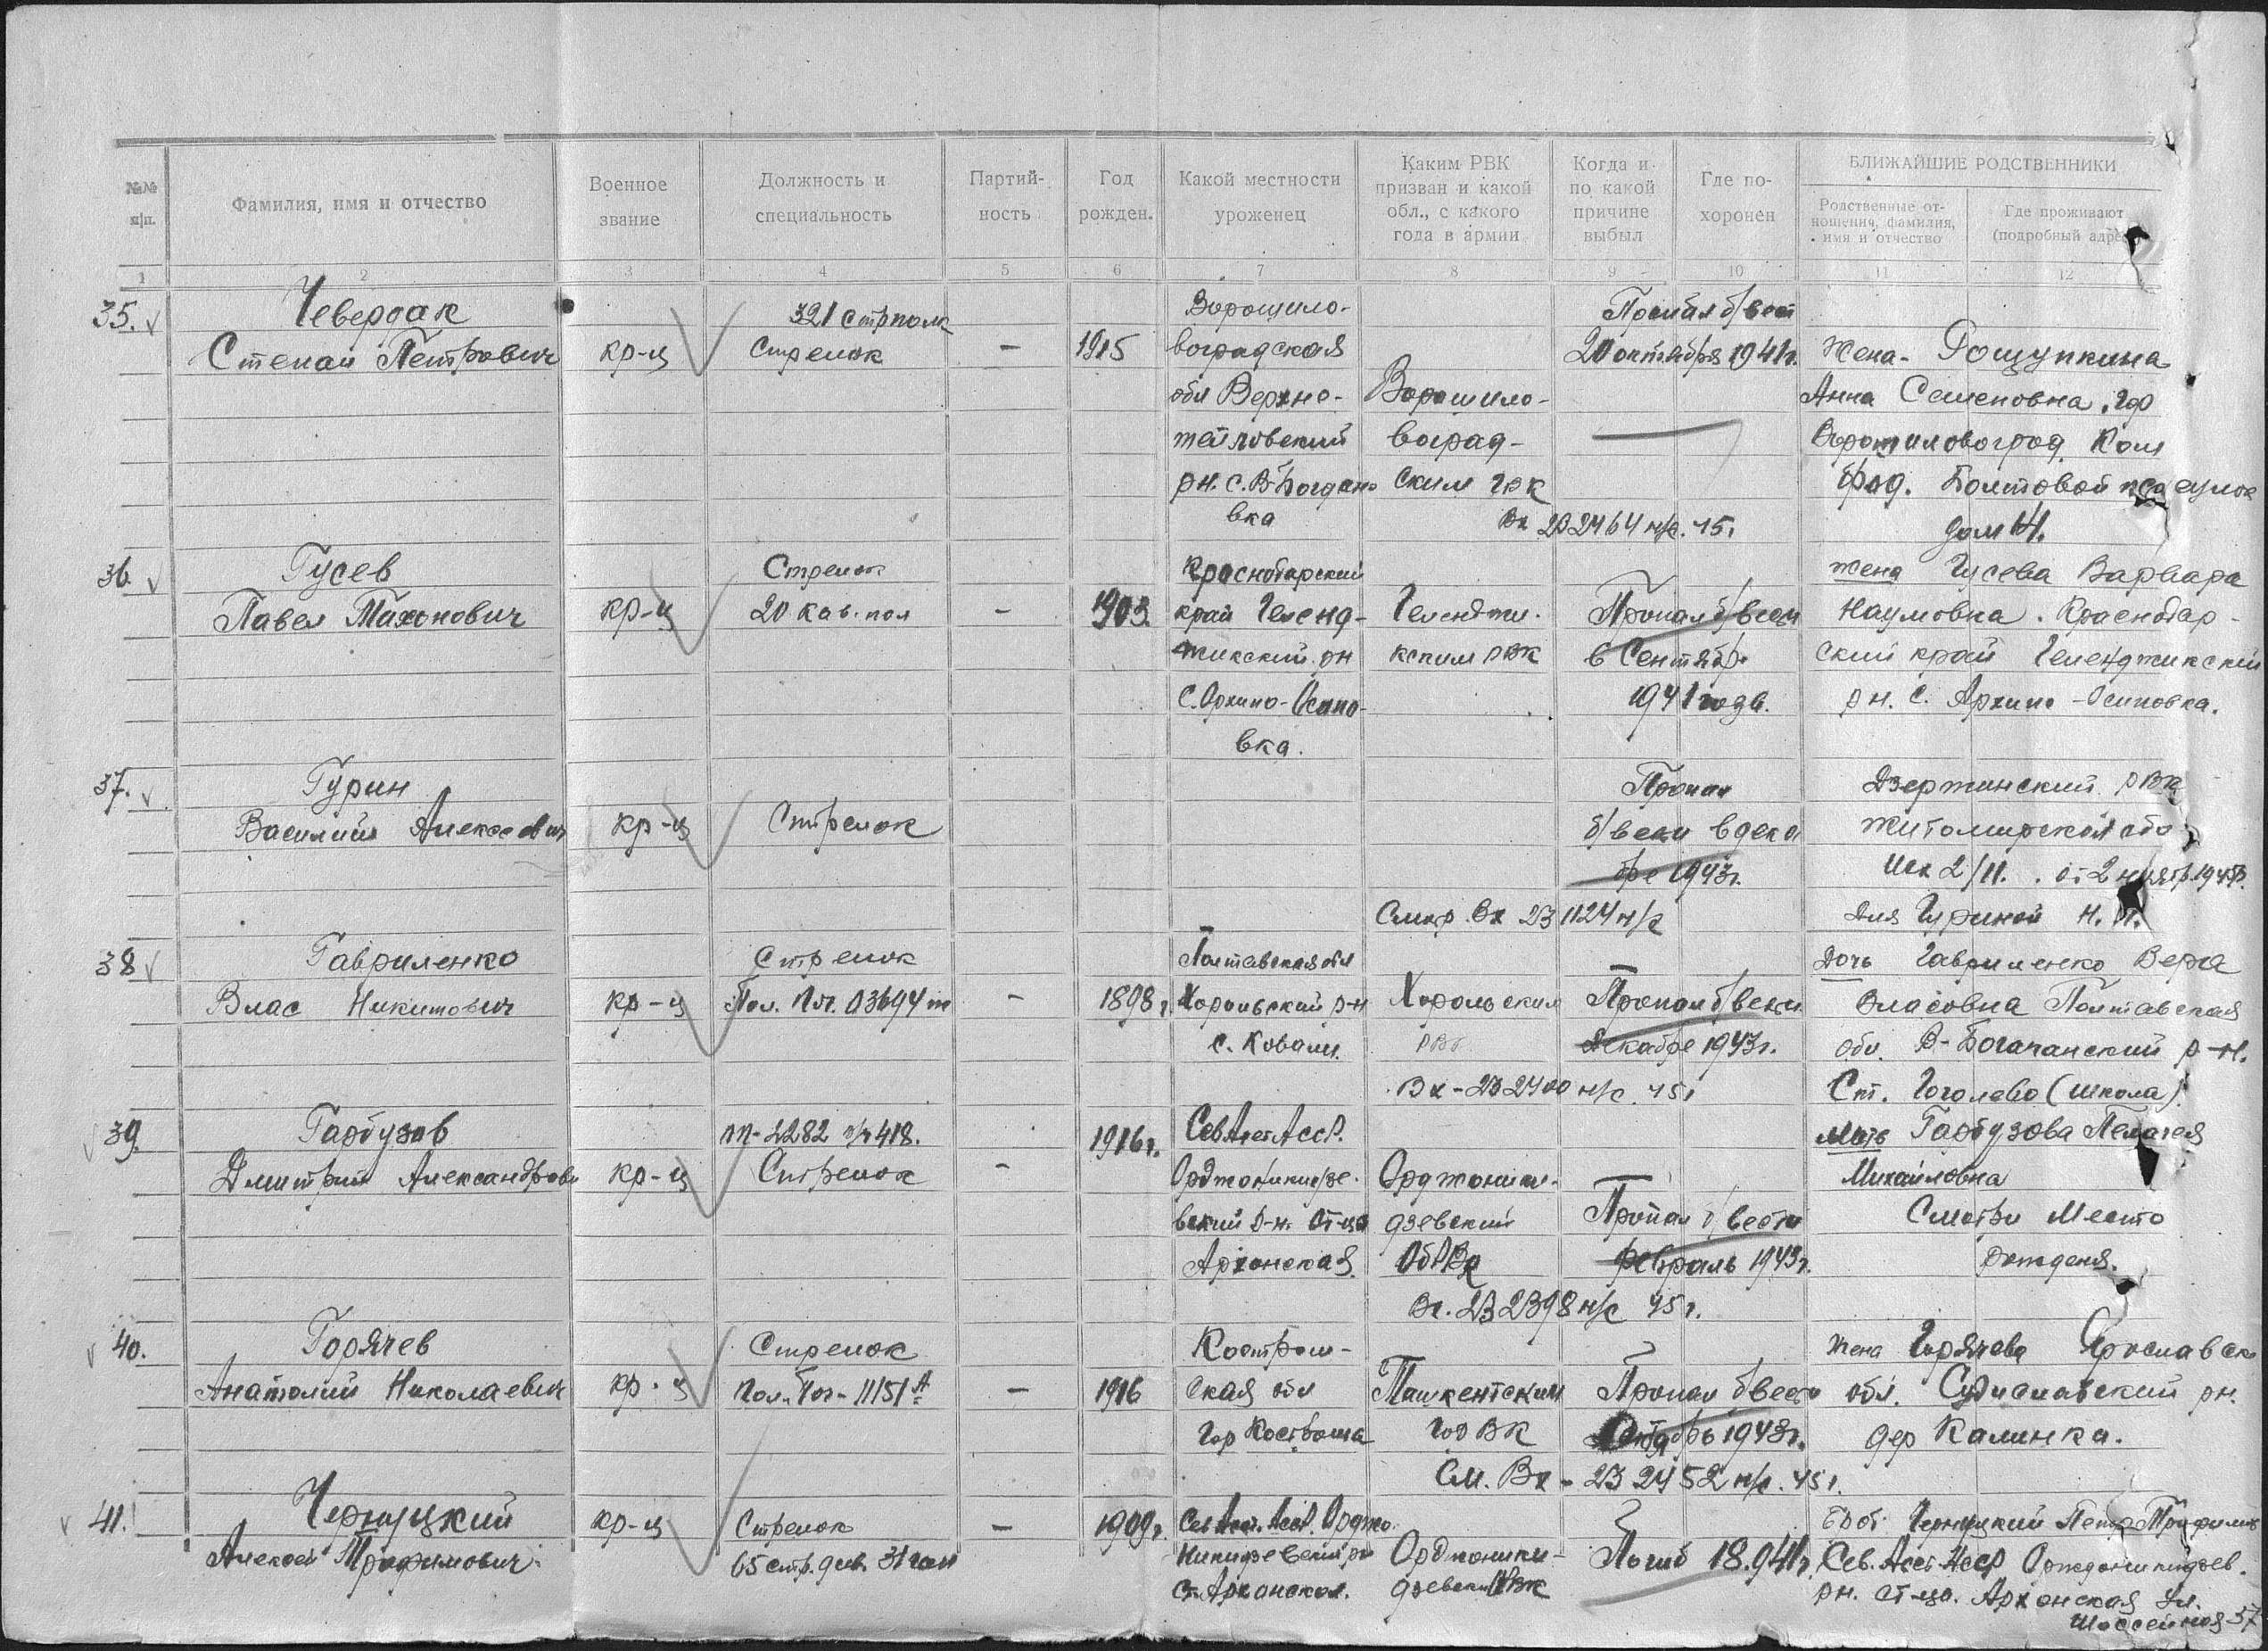 №№ п/п.
Фамилия, имя и отчество
Военное звание
Должность и специальность
Партий-ность
Год рожден.
Какой местности уроженец
Каким РВК призван и какой обл., с какого года в армии
Когда и по какой причине выбыл
Где по-хоронен
БЛИЖАЙШИЕ РОДСТВЕННИКИ
Родственные от-ношения, фамилия, имя и отчество
Где проживают (подробный адрес
1 2 3 4 5 6 7 8 9 10 11 12
35.
Степан Петрович
кр-ц
321 стрполк
Стрелок
—
1915
Ворошило-
воградская
обл Верхне-
тепловский
рн. с. В-Богдано
вка
Ворошило-
воград-
ским ГВК
Вх 2В 2464 н/с. 45г
20 октября 1941г.
Жена- Рощупкина
Анна Семеновна. гор
Ворошиловоград.
дом
36.
Гусев
Павел
кр-ц
Стрелок
20 кав. пол
—
1903
Краснодарский
край Геленд-
жикский рн
С. Архипо-Осипо-
вка.
Геленджи-
кским РВК
Пропал б/вести
в Сентябр
1941 года.
жена Гусева Варвара
Наумовна. Краснодар-
ский край Геленджикский
рн. с. Архипо-Осиповка.
37.
Гурин
Василий Алексеевич
кр-ц
Стрелок
Пропал
б/вести в дека
бре 1943г.
Дзержинский РВК
Житомирской обл
Исх 2/11. от 2
Для Гуриной Н.
Смотр. Вх 2В 1124 н/с
38
Гавриленко
Влас Никитович
кр-ц
Стрелок
Пол. Пч. 03694 т
—
1898 г.
Полтавская обл
Хорольский р-н
с. Ковали.
Хорольским
РВК
Пропал б/вести
Декабре 1943г.
Вх-2В 2400 н/с. 45г
Дочь Гавриленко Вера
Власовна Полтавская
обл.
Ст. Гоголево (школа).
39.
Гарбузов
Дмитрий Александрови
кр-ц
пп-2282 п/ч 418.
Стрелок
—
1916г.
Сев.Осет.АССР.
Орджоникидзе-
вский р-н. Ст-ца
Архонская.
Орджоники-
дзевский
Пропал б/вести
февраль 1943г.
Вх. 2В 2398 н/с 45г.
Мать Гарбузова Пелагея
Михайловна
Смотри Место
рождения.
40.
Горячев
Анатолий Николаевич
кр-ц
Стрелок
Пол. Поч-11151 А
—
1916
Костром-
ская обл
Гор Кострома
Ташкентским
Гор ВК
Пропал б/вести
Октябрь 1943г.
См. Вх-2В 2452 н/с. 45г.
Жена Горячева Ярославск
обл. Судиславский рн.
дер Калинка.
41.
Алексей Трофимович
кр-ц
Стрелок
65 стр. див.
—
1909г.
Сев Осет. АССР. Орджо-
никидзевский рн
Ст. Архонская.
Орджоники-
дзевский РВК
Погиб 18.9.41г.
Брат Петр Трофимов
Сев. Осет АССР Орджоникидзев.
рн. ст-ца. Архонская ул.
Шоссейная 37